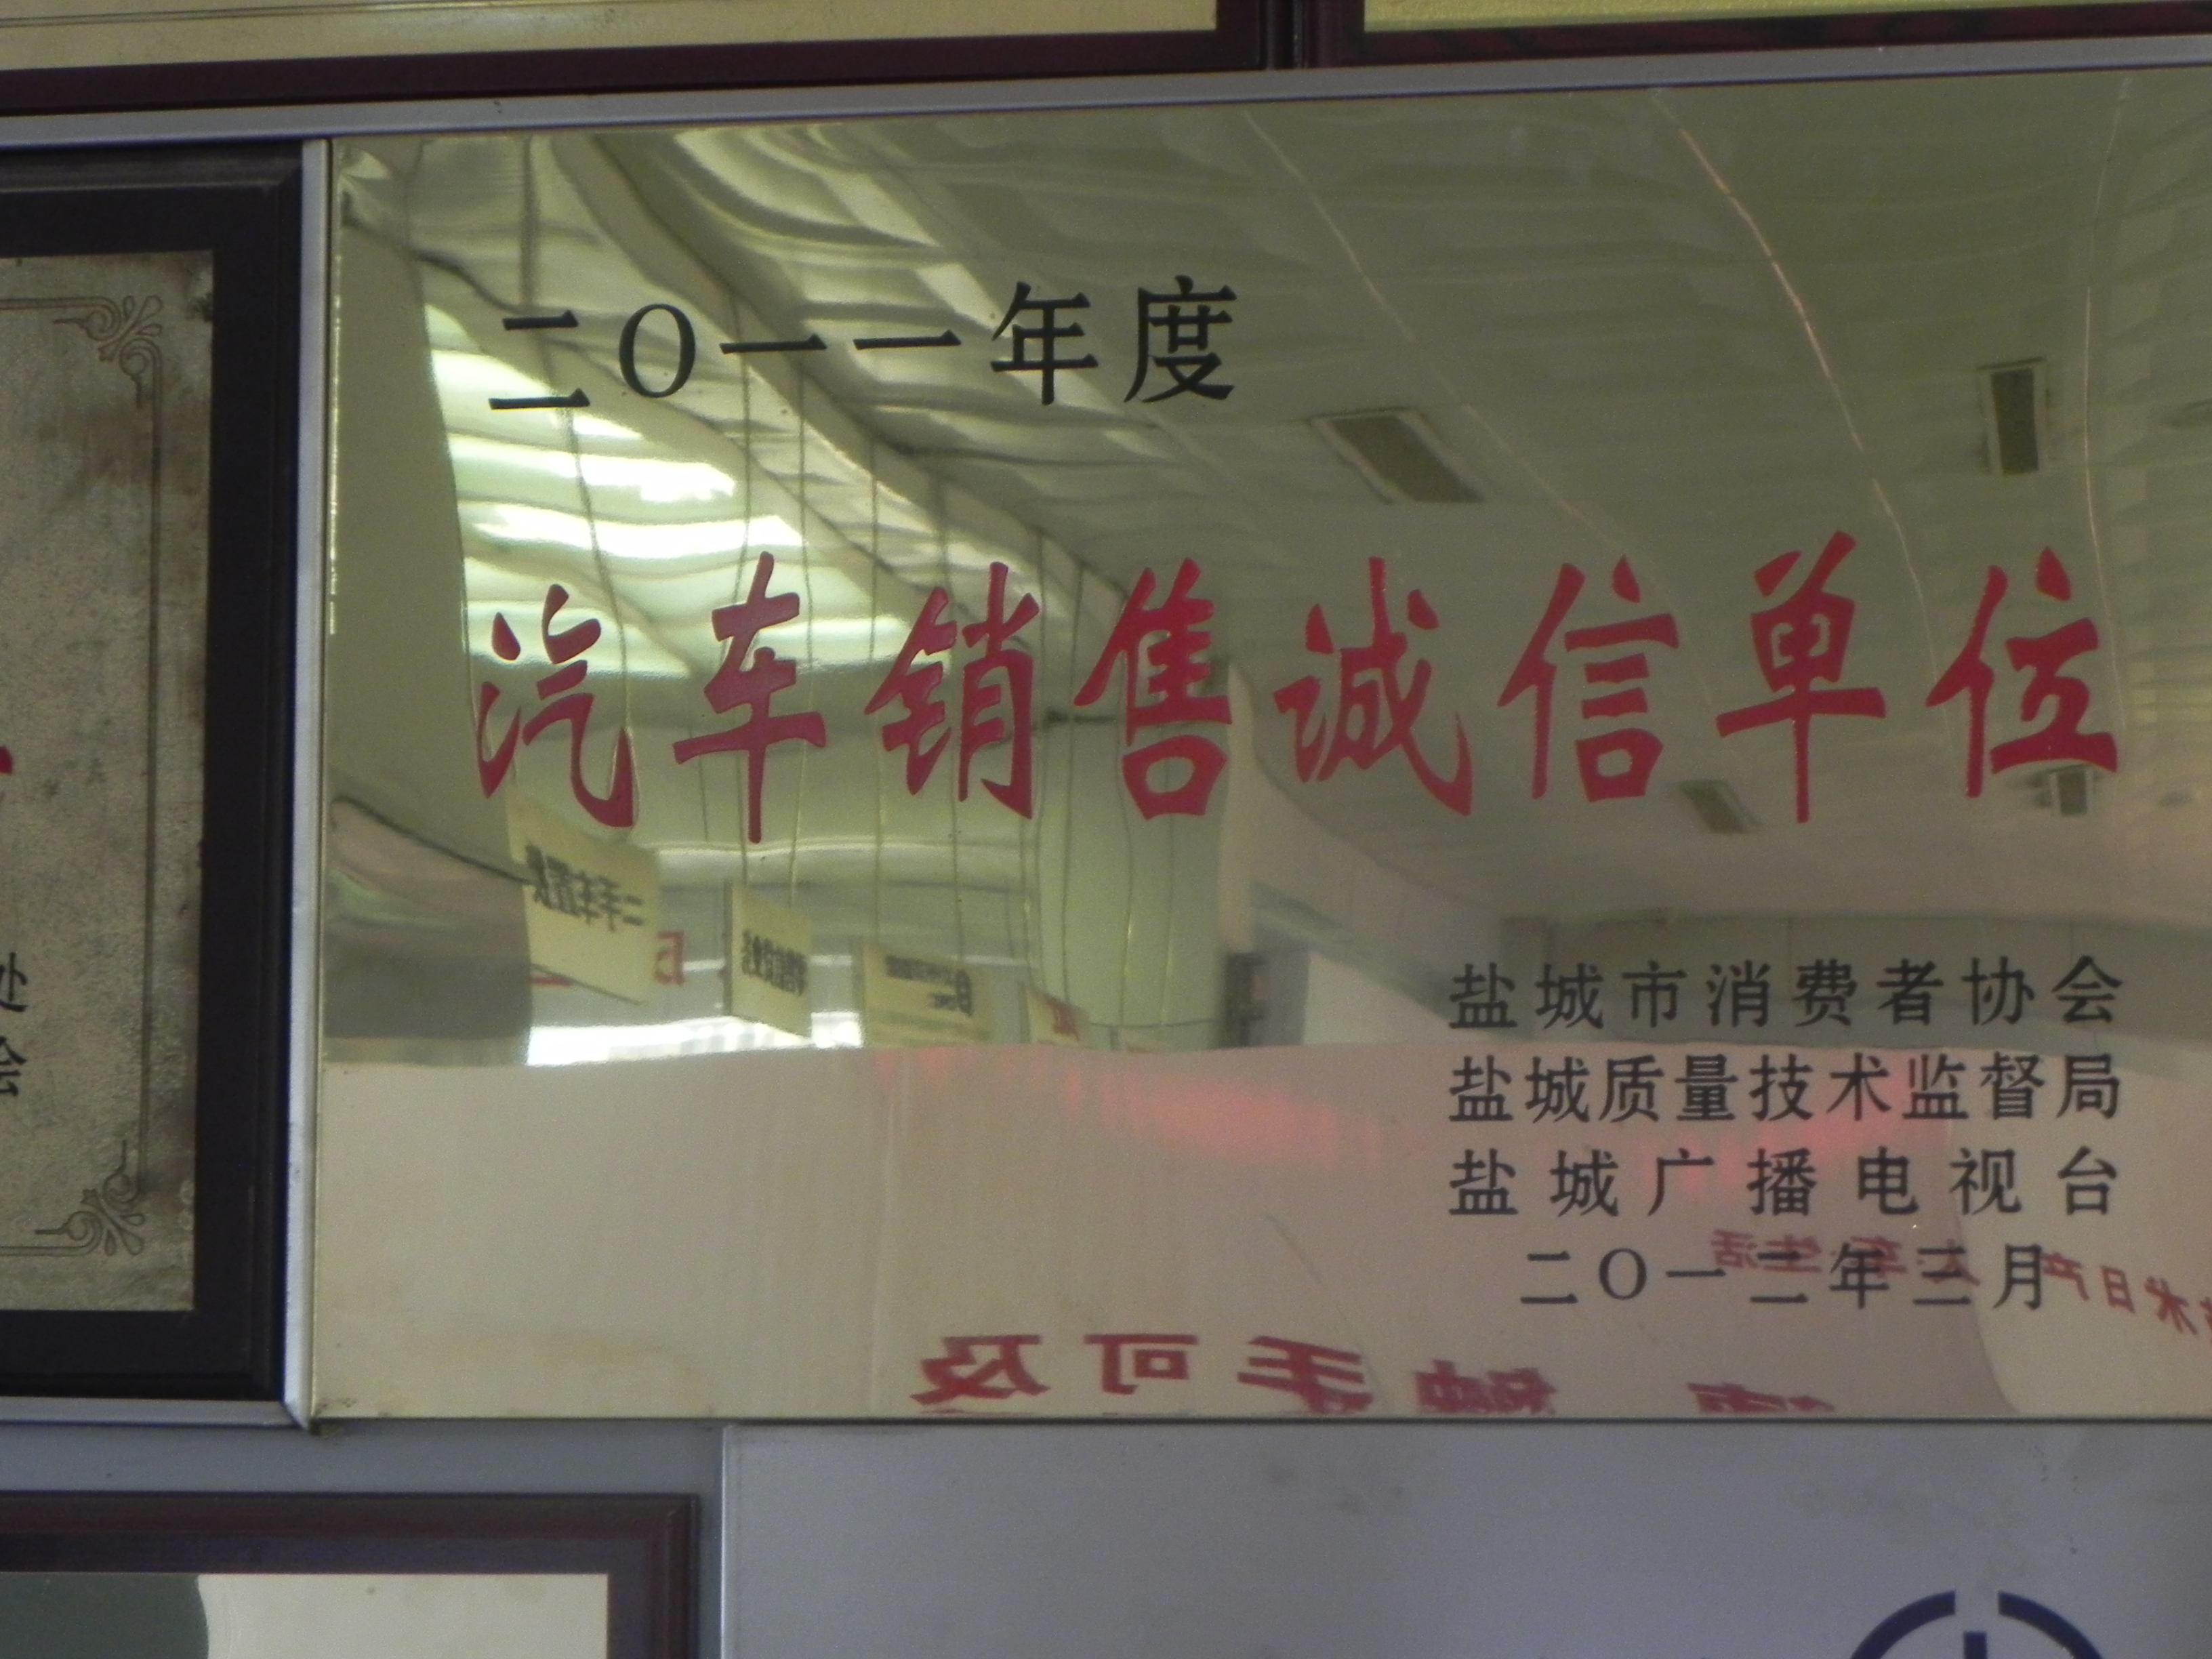 二〇一一年度
汽车销售诚信单位
盐城市消费者协会
盐城质量技术监督局
盐城广播电视台
二〇一二年三月
处
会
二手车置换
手可及